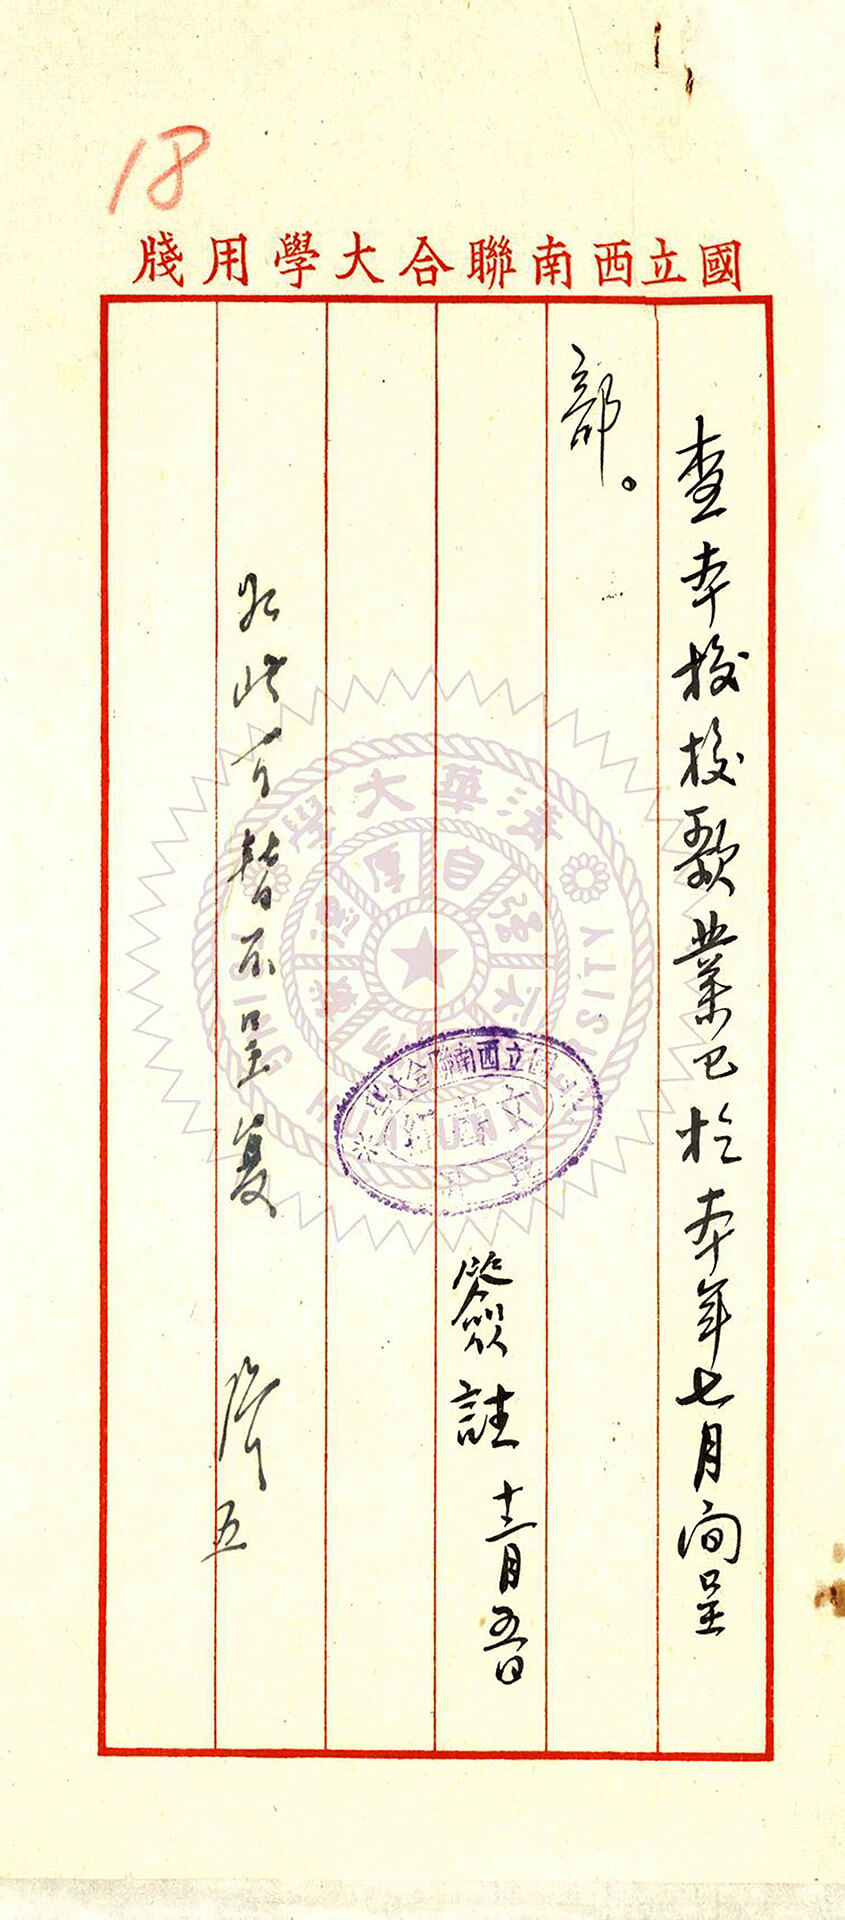 18
國立西南聯合大學用牋
查本校校歌業已於本年七月間呈
部。
國立西南聯合大學
文書組
簽註 十二月五日
如此可暫不呈复
五
清華大學
自強不息
厚德載物